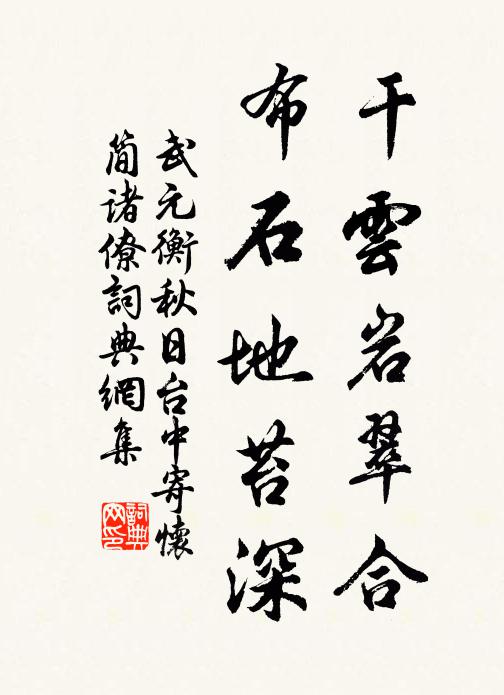 干雲岩翠合
布石地苔深
武元衡秋日台中寄懷
简诸僚詞典網集
詞典
网印